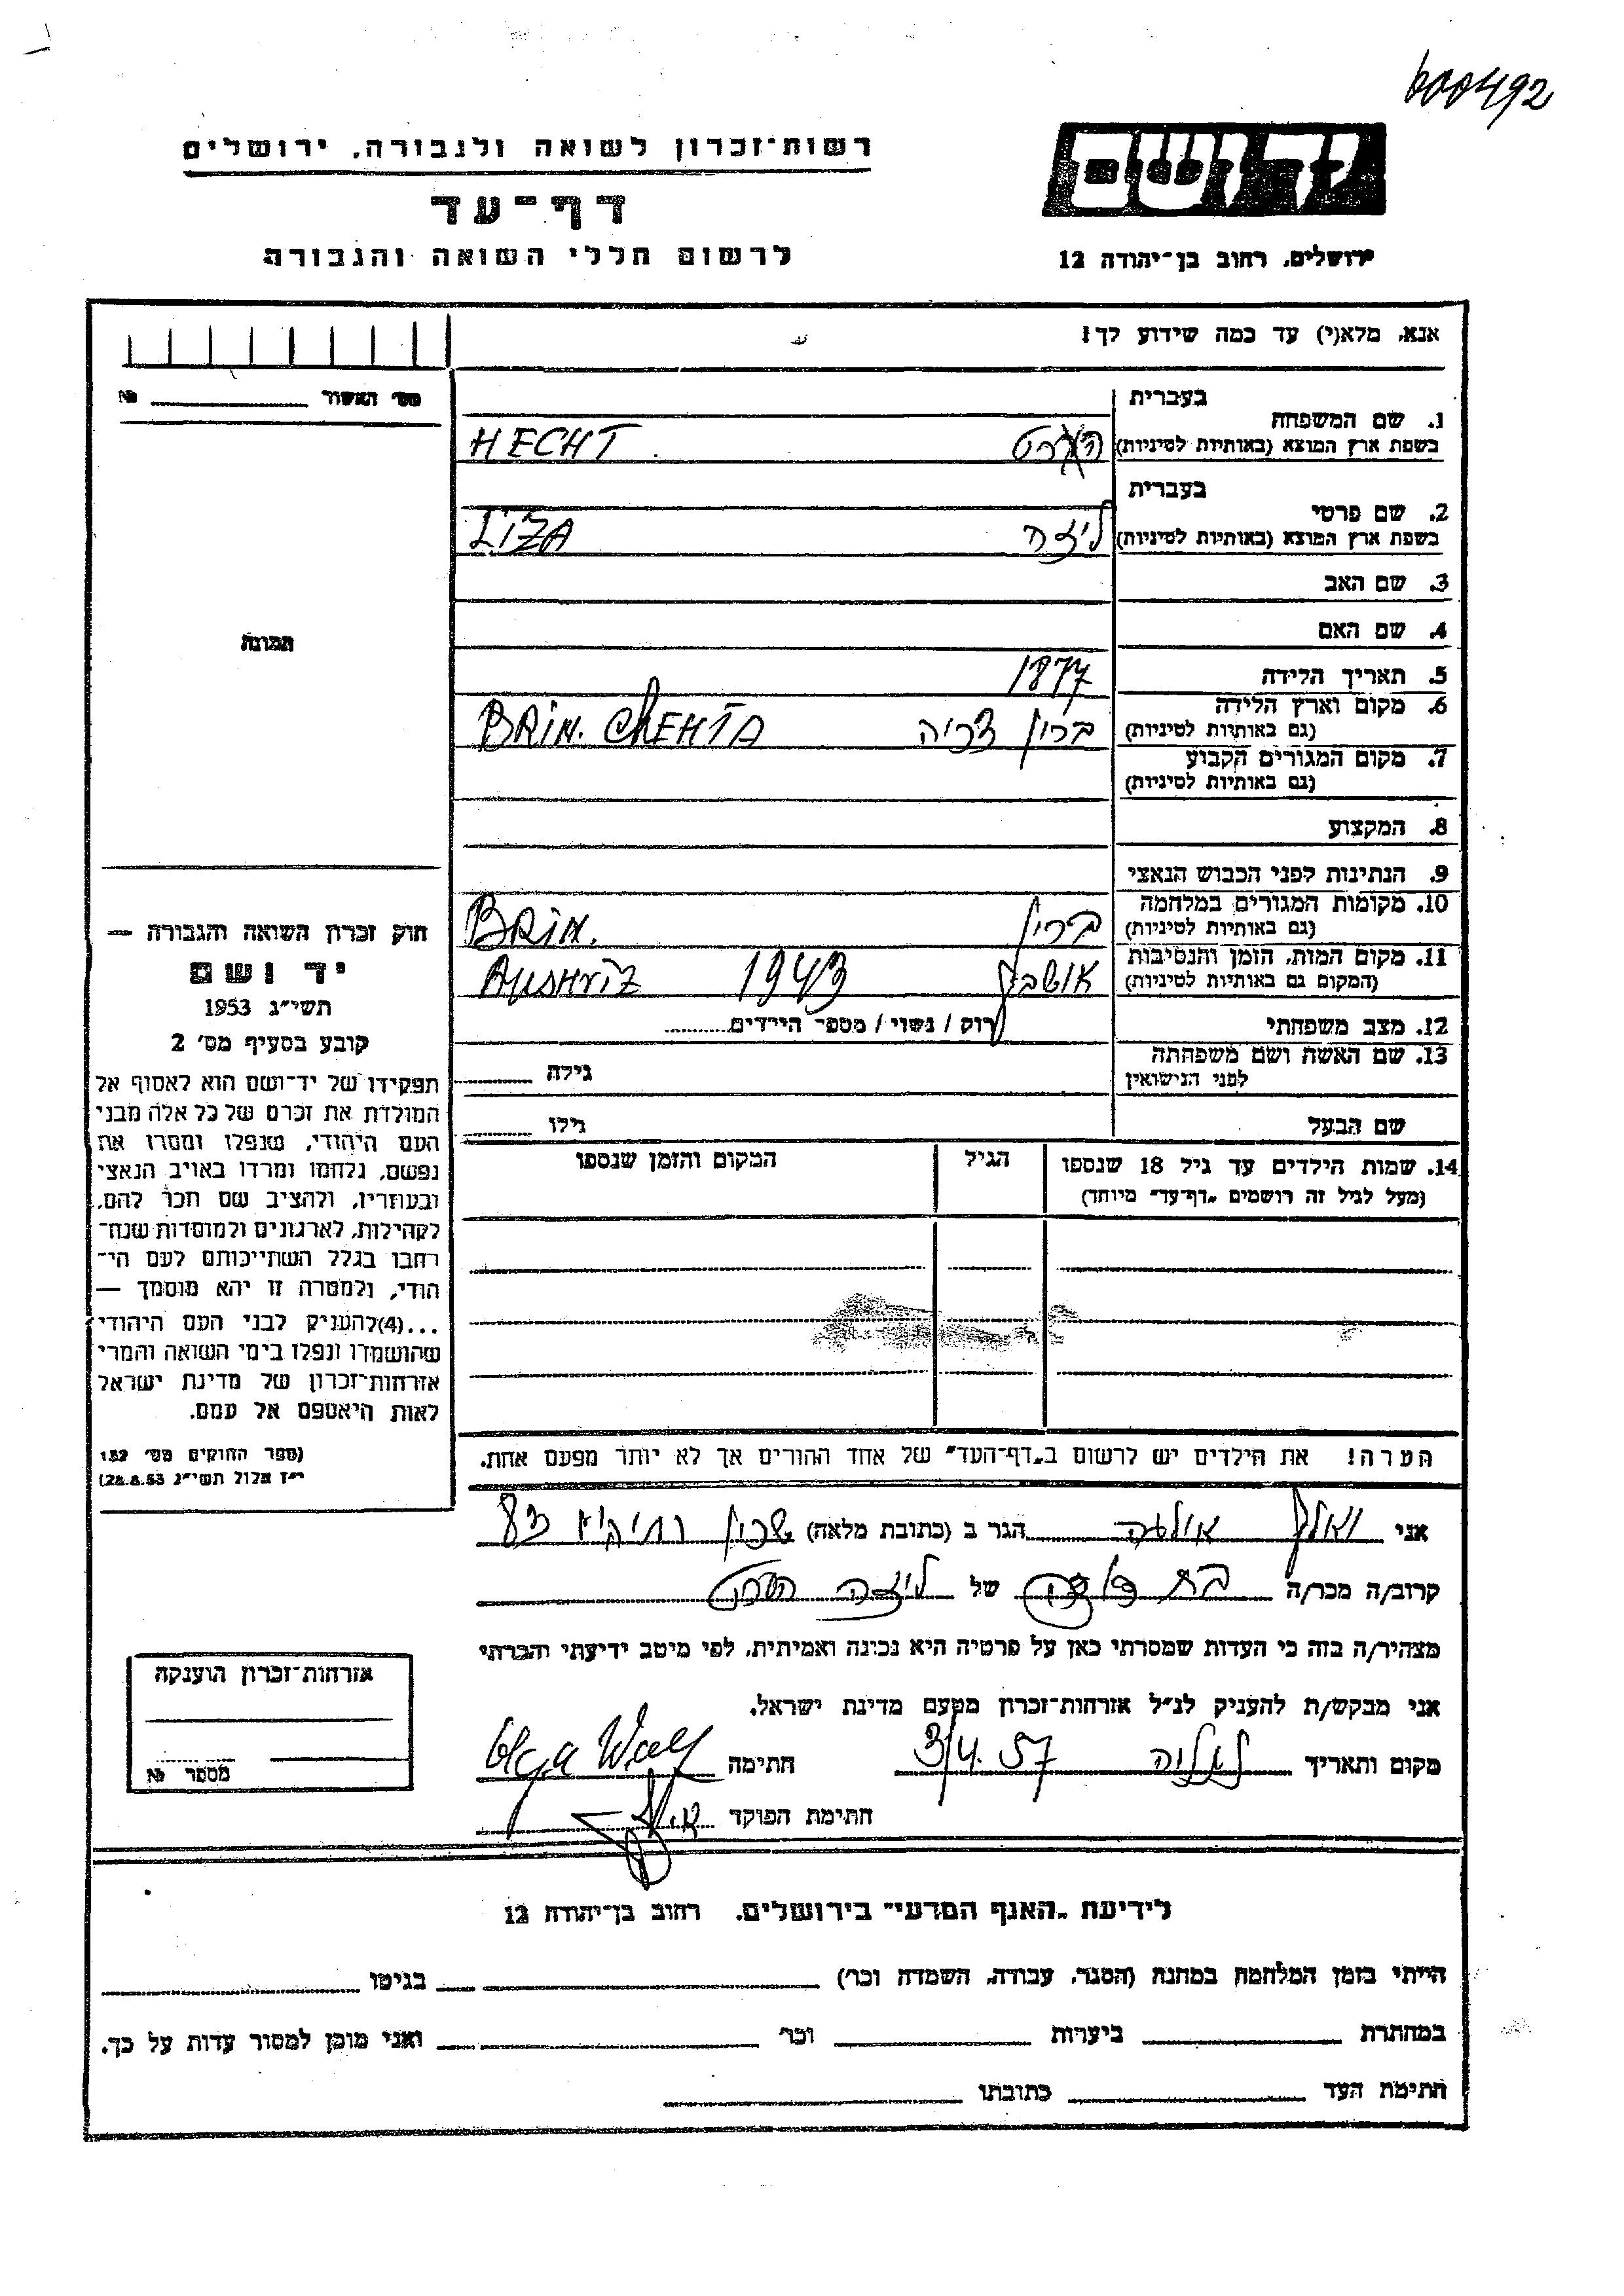 000492
רשות־זכרון לשואה ולגבורה, ירושלים
יד ושם
דף־עד
לרשום חללי השואה והגבורה
ירושלים, רחוב בן־יהודה 12
אנא, מלא(י) עד כמה שידוע לך!
מס׳ האשור № ____
1. שם המשפחה
בעברית
בשפת ארץ המוצא (באותיות לטיניות)
HECHT
2. שם פרטי
בעברית
ליזה
בשפת ארץ המוצא (באותיות לטיניות)
LIZA
3. שם האב
4. שם האם
תמונה
5. תאריך הלידה 1877
6. מקום וארץ הלידה
(גם באותיות לטיניות)
ברין BRIN.
7. מקום המגורים הקבוע
(גם באותיות לטיניות)
8. המקצוע
9. הנתינות לפני הכבוש הנאצי
10. מקומות המגורים במלחמה
(גם באותיות לטיניות)
ברין BRIN.
11. מקום המות, הזמן והנסיבות
(המקום גם באותיות לטיניות)
אושביץ 1943
12. מצב משפחתי
רוק / נשוי / מספר הילדים
13. שם האשה ושם משפחתה
לפני הנישואין
גילה
שם הבעל
גילו
14. שמות הילדים עד גיל 18 שנספו
(מעל לגיל זה רושמים „דף־עד״ מיוחד)
הגיל
המקום והזמן שנספו
חוק זכרון השואה והגבורה —
יד ושם
תשי״ג 1953
קובע בסעיף מס׳ 2
תפקידו של יד־ושם הוא לאסוף אל
המולדת את זכרם של כל אלה מבני
העם היהודי, שנפלו ומסרו את
נפשם, נלחמו ומרדו באויב הנאצי
ובעוזריו, ולהציב שם וזכר להם,
לקהילות, לארגונים ולמוסדות שנח־
רחבו בגלל השתייכותם לעם הי־
הודי, ולמטרה זו יהא מוסמך —
...(4)להעניק לבני העם היהודי
שהושמדו ונפלו בימי השואה והמרי
אזרחות־זכרון של מדינת ישראל
לאות היאספם אל עמם.
(ספר החוקים מס׳ 132
י״ז אלול תשי״ג 28.8.53)
הערה! את הילדים יש לרשום ב„דף־העד״ של אחד ההורים אך לא יותר מפעם אחת.
אני וולף אולגה הגר ב (כתובת מלאה) שכון ותיקים
קרוב/ה מכר/ה בת של ליזה
מצהיר/ה בזה כי העדות שמסרתי כאן על פרטיה היא נכונה ואמיתית, לפי מיטב ידיעתי והכרתי
אני מבקש/ת להעניק לנ״ל אזרחות־זכרון מטעם מדינת ישראל.
מקום ותאריך 3/4.57 חתימה Olga
חתימת הפוקד
אזרחות־זכרון הוענקה
מספר №
לידיעת „האגף המדעי״ בירושלים, רחוב בן־יהודה 12
הייתי בזמן המלחמה במחנה (הסגר, עבודה, השמדה וכו׳) בגיטו
במחתרת ביערות וכו׳ ואני מוכן למסור עדות על כך.
חתימת העד כתובתו